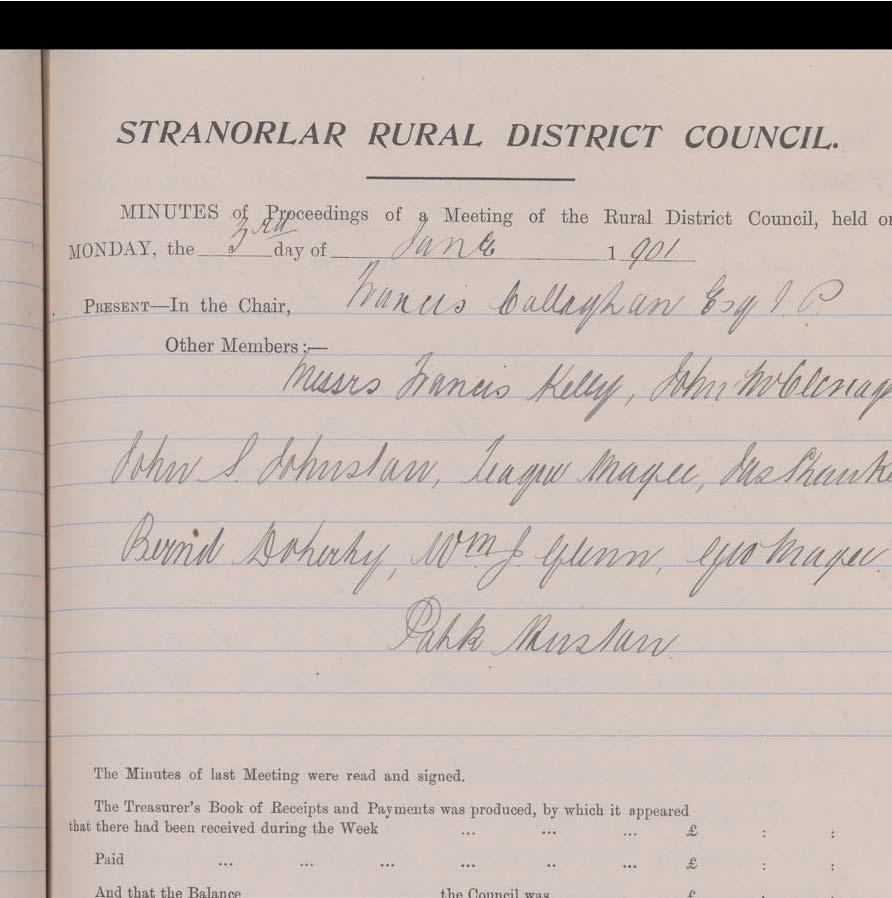 STRANORLAR RURAL DISTRICT COUNCIL.
MINUTES of Proceedings of a Meeting of the Rural District Council, held on
MONDAY, the 3rd day of June 1901
PRESENT—In the Chair, Francis Callaghan Esq J.P.
Other Members :—
Messrs Francis Kelly, John
John S. Johnston, Teague Magee, Jas
Bernd Doherty, Wm J. Glenn, Geo Magee
Patk
The Minutes of last Meeting were read and signed.
The Treasurer's Book of Receipts and Payments was produced, by which it appeared
that there had been received during the Week ... ... ... £ : :
Paid ... ... ... ... .. ... £ : :
And that the Balance the Council was £ : :